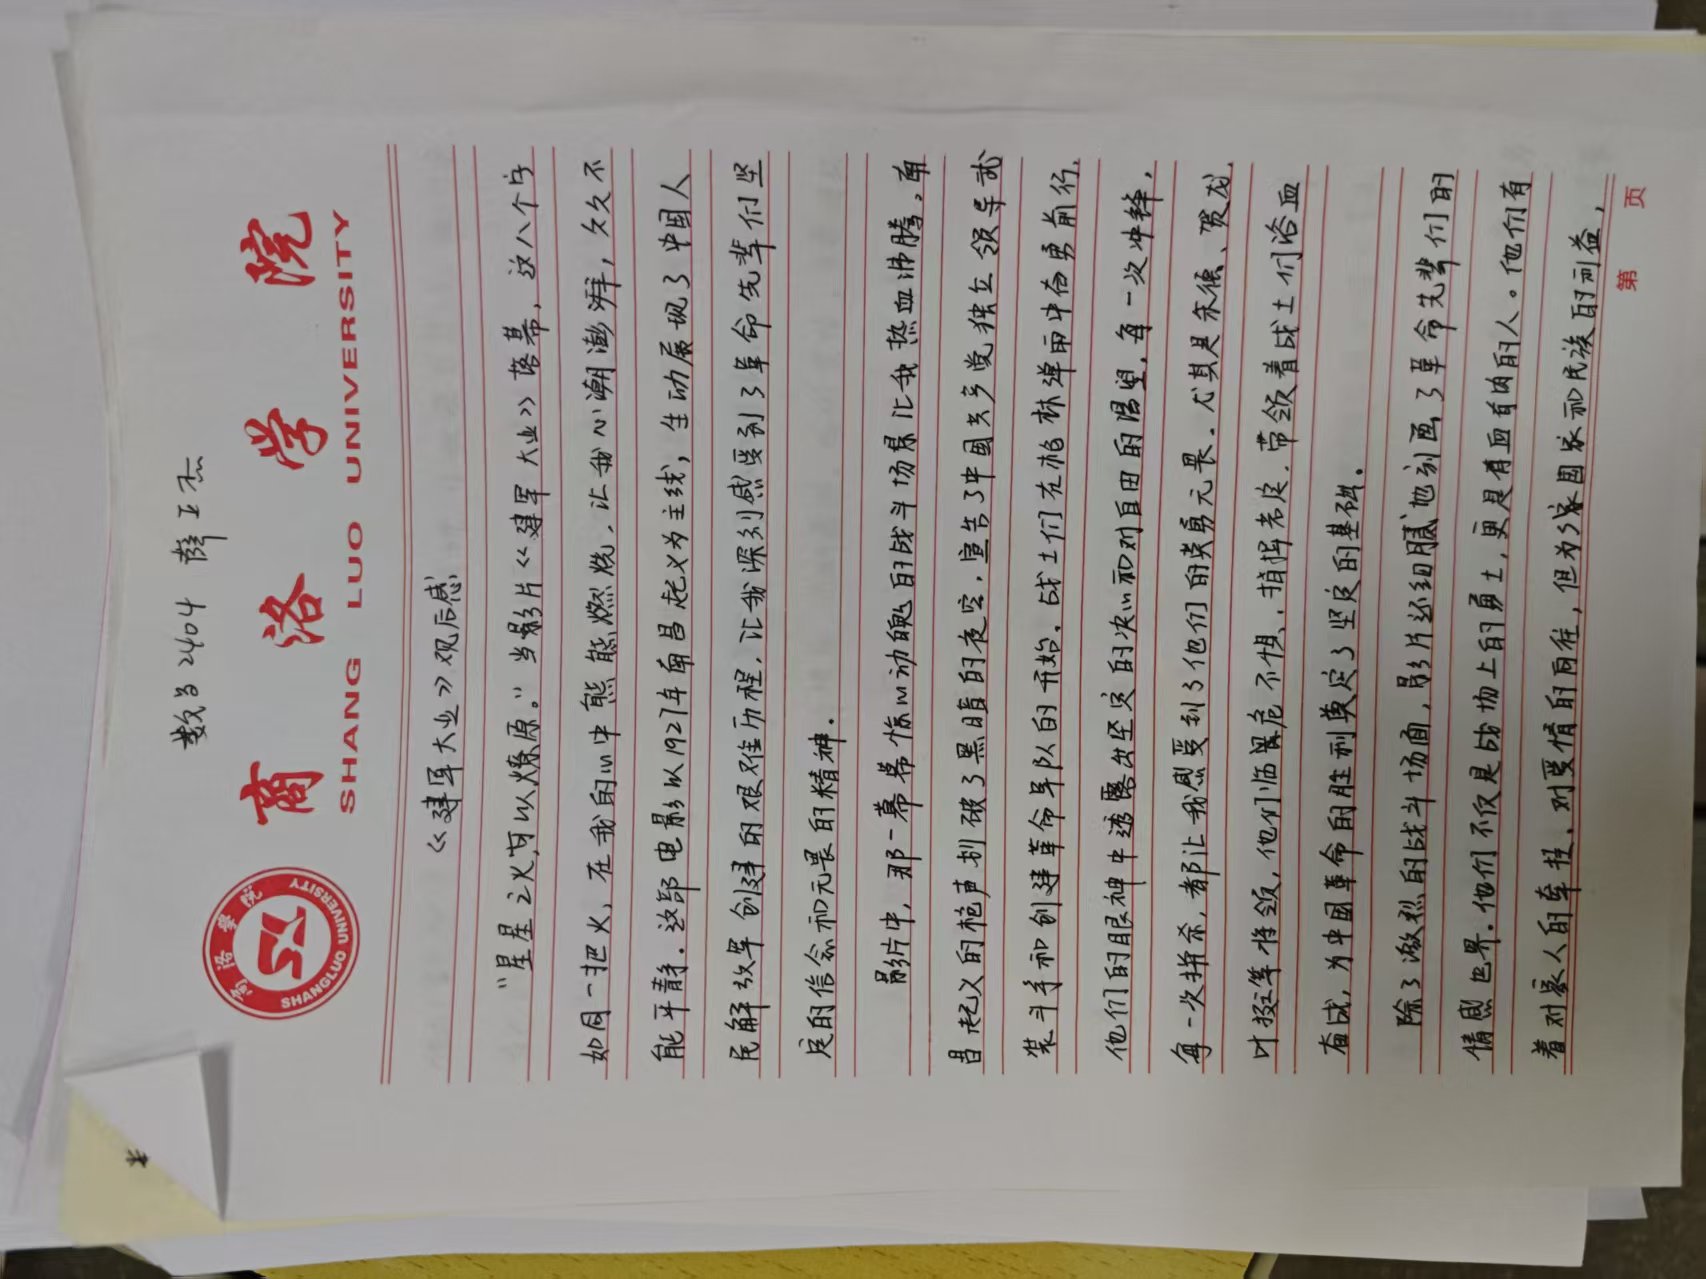 数马2404 薛工杰
商洛学院
SHANG LUO UNIVERSITY
商洛学院
SL
SHANGLUO UNIVERSITY
《建军大业》观后感
“星星之火,可以燎原。”当影片《建军大业》落幕,这八个字
如同一把火,在我的心中熊熊燃烧,让我心潮澎湃,久久不
能平静。这部电影以1927年南昌起义为主线,生动展现了中国人
民解放军创建的艰难历程,让我深刻感受到了革命先辈们坚
定的信念和无畏的精神。
影片中,那一幕幕惊心动魄的战斗场景让我热血沸腾。南
昌起义的枪声划破了黑暗的夜空,宣告了中国共产党独立领导武
装斗争和创建革命军队的开始。战士们在枪林弹雨中奋勇前行,
他们的眼神中透露出坚定的决心和对自由的渴望,每一次冲锋,
每一次拼杀,都让我感受到了他们的英勇无畏。尤其是朱德、贺龙、
叶挺等将领,他们临危不惧、指挥若定,带领着战士们浴血
奋战,为中国革命的胜利奠定了坚实的基础。
除了激烈的战斗场面,影片还细腻地刻画了革命先辈们的
情感世界。他们不仅是战场上的勇士,更是有血有肉的人。他们有
着对家人的牵挂、对爱情的向往,但为了国家和民族的利益,
第 页